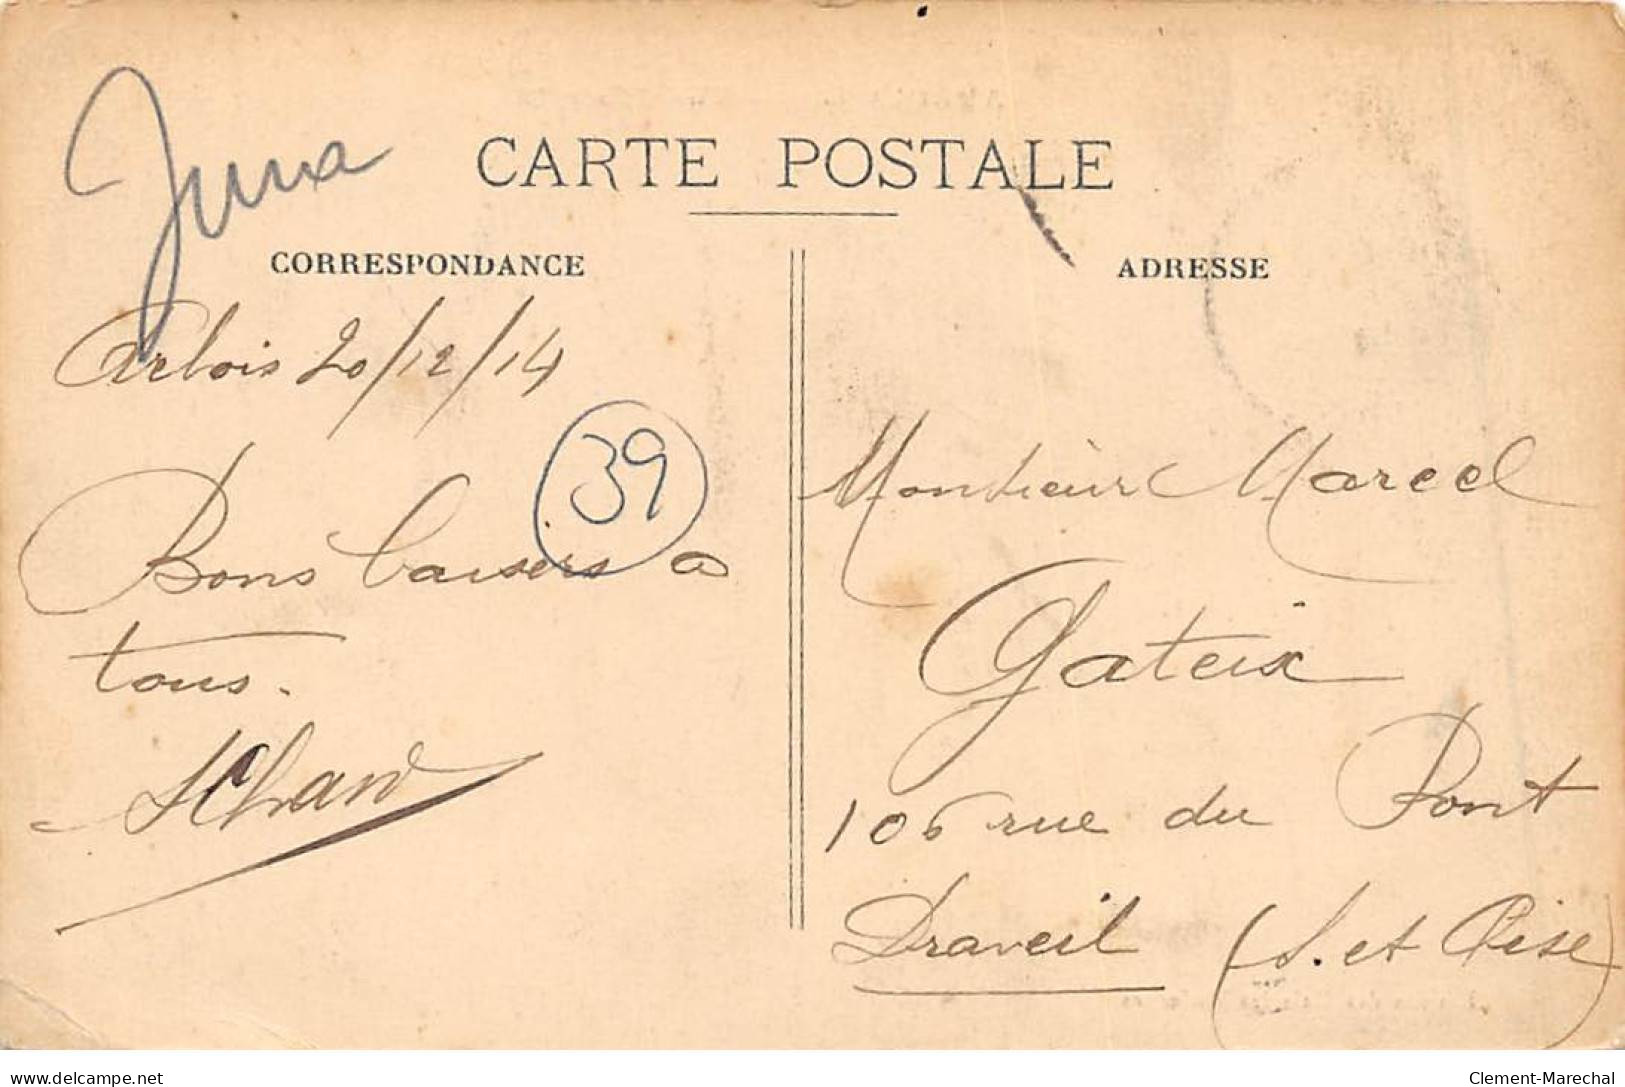 Jura
CARTE POSTALE
CORRESPONDANCE
Arbois 20/12/14
39
Bons baisers a
tous.
ADRESSE
Monsieur Marcel
Gateix
106 rue du Pont
Draveil (S. et Oise)
delcampe.net
Clement-Marechal